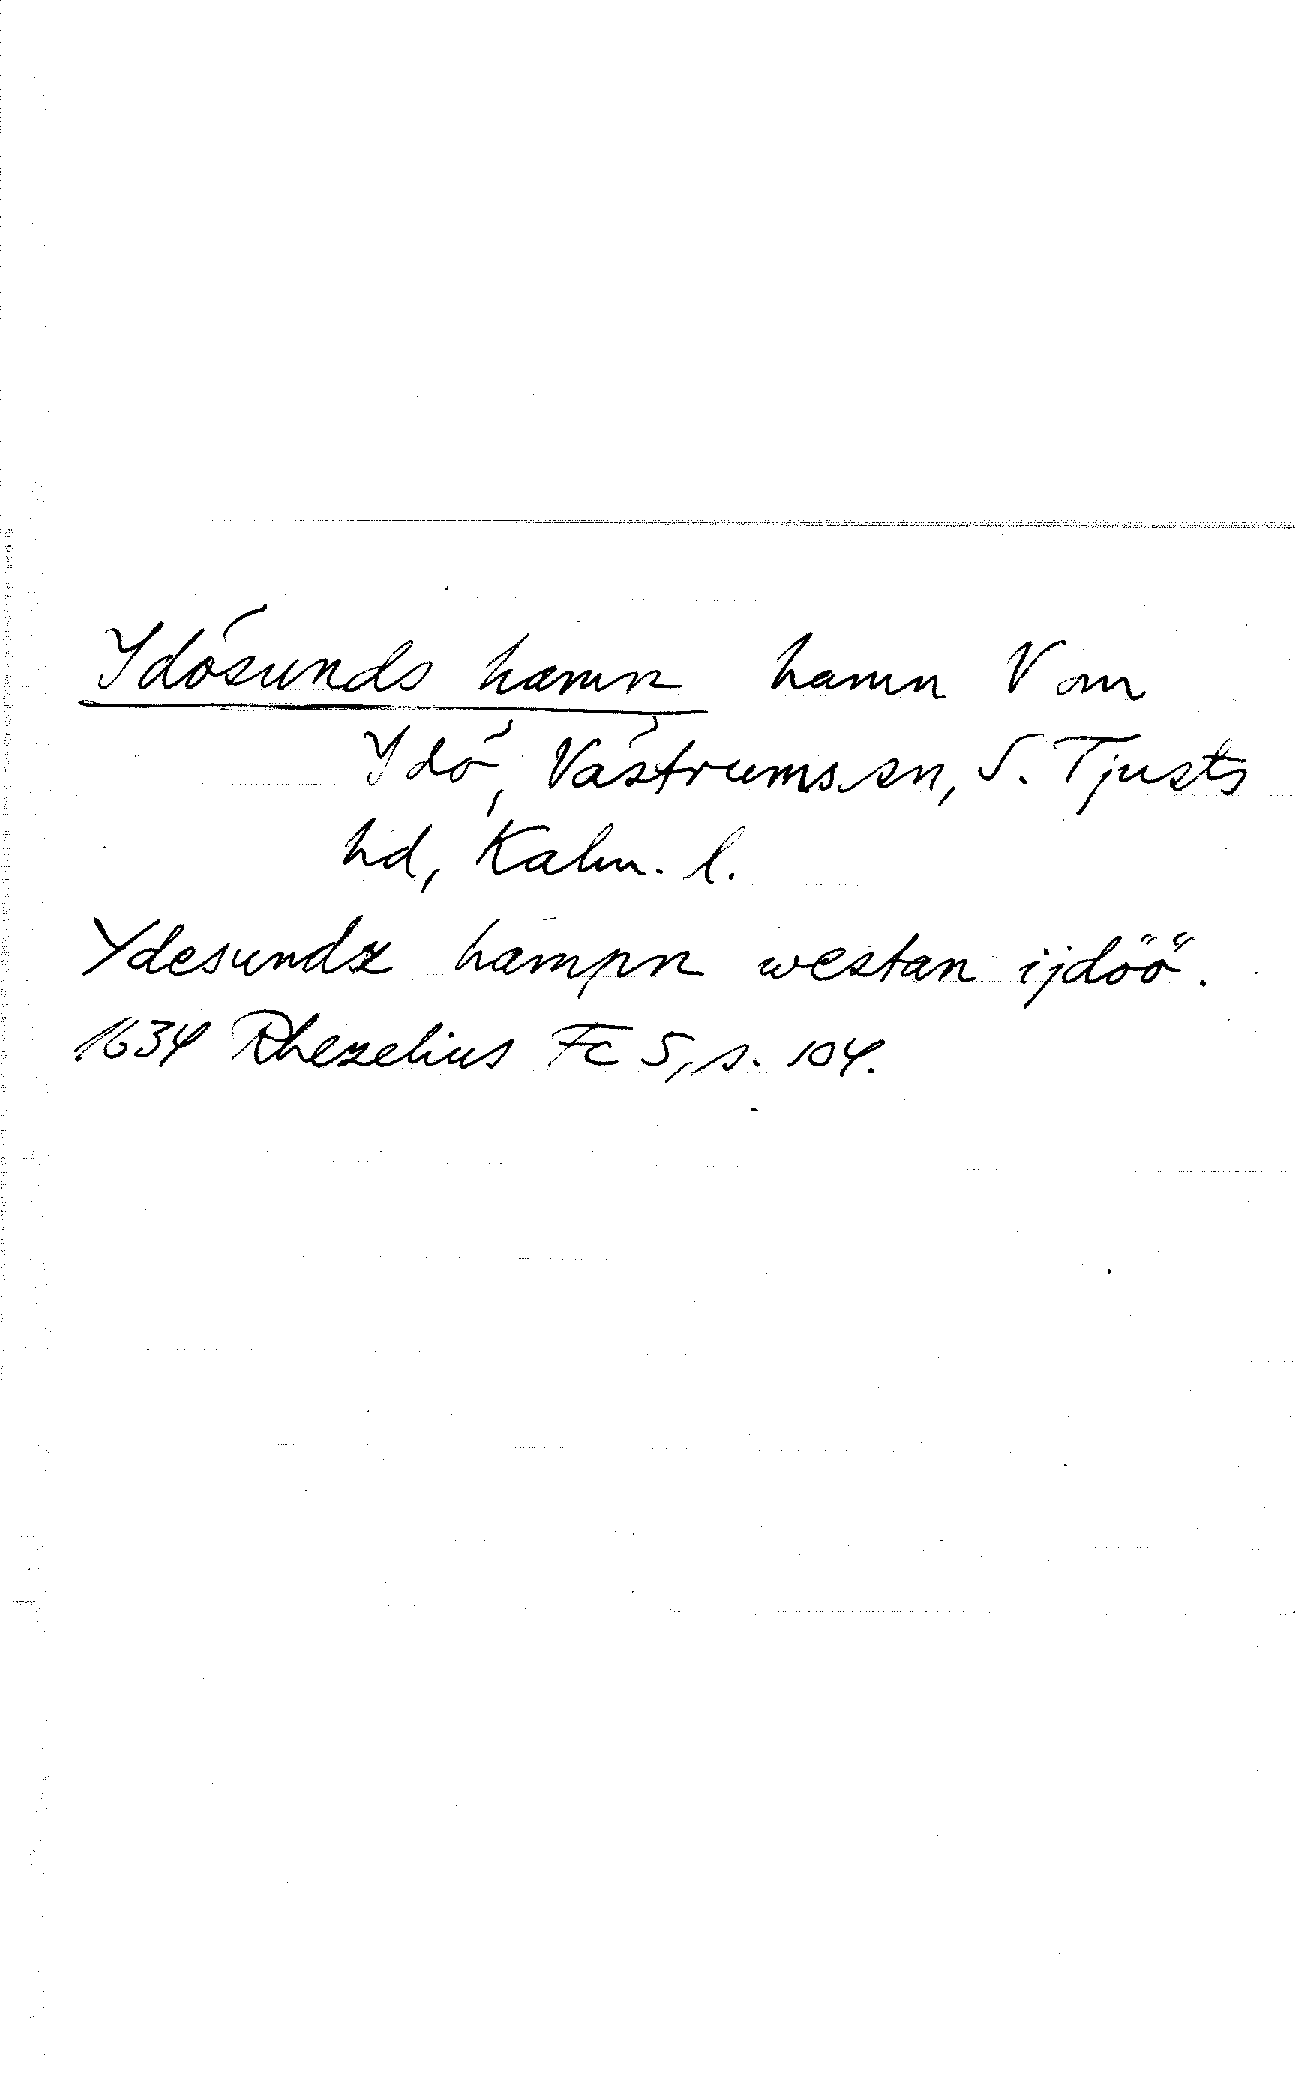 Ydösunds hamn hamn V om
Ydö, Västrums sn, S. Tjusts
hd, Kalm. l.
Ydesundz hampn westan ijdöö.
1634 Rhezelius Fc 5, s. 104.